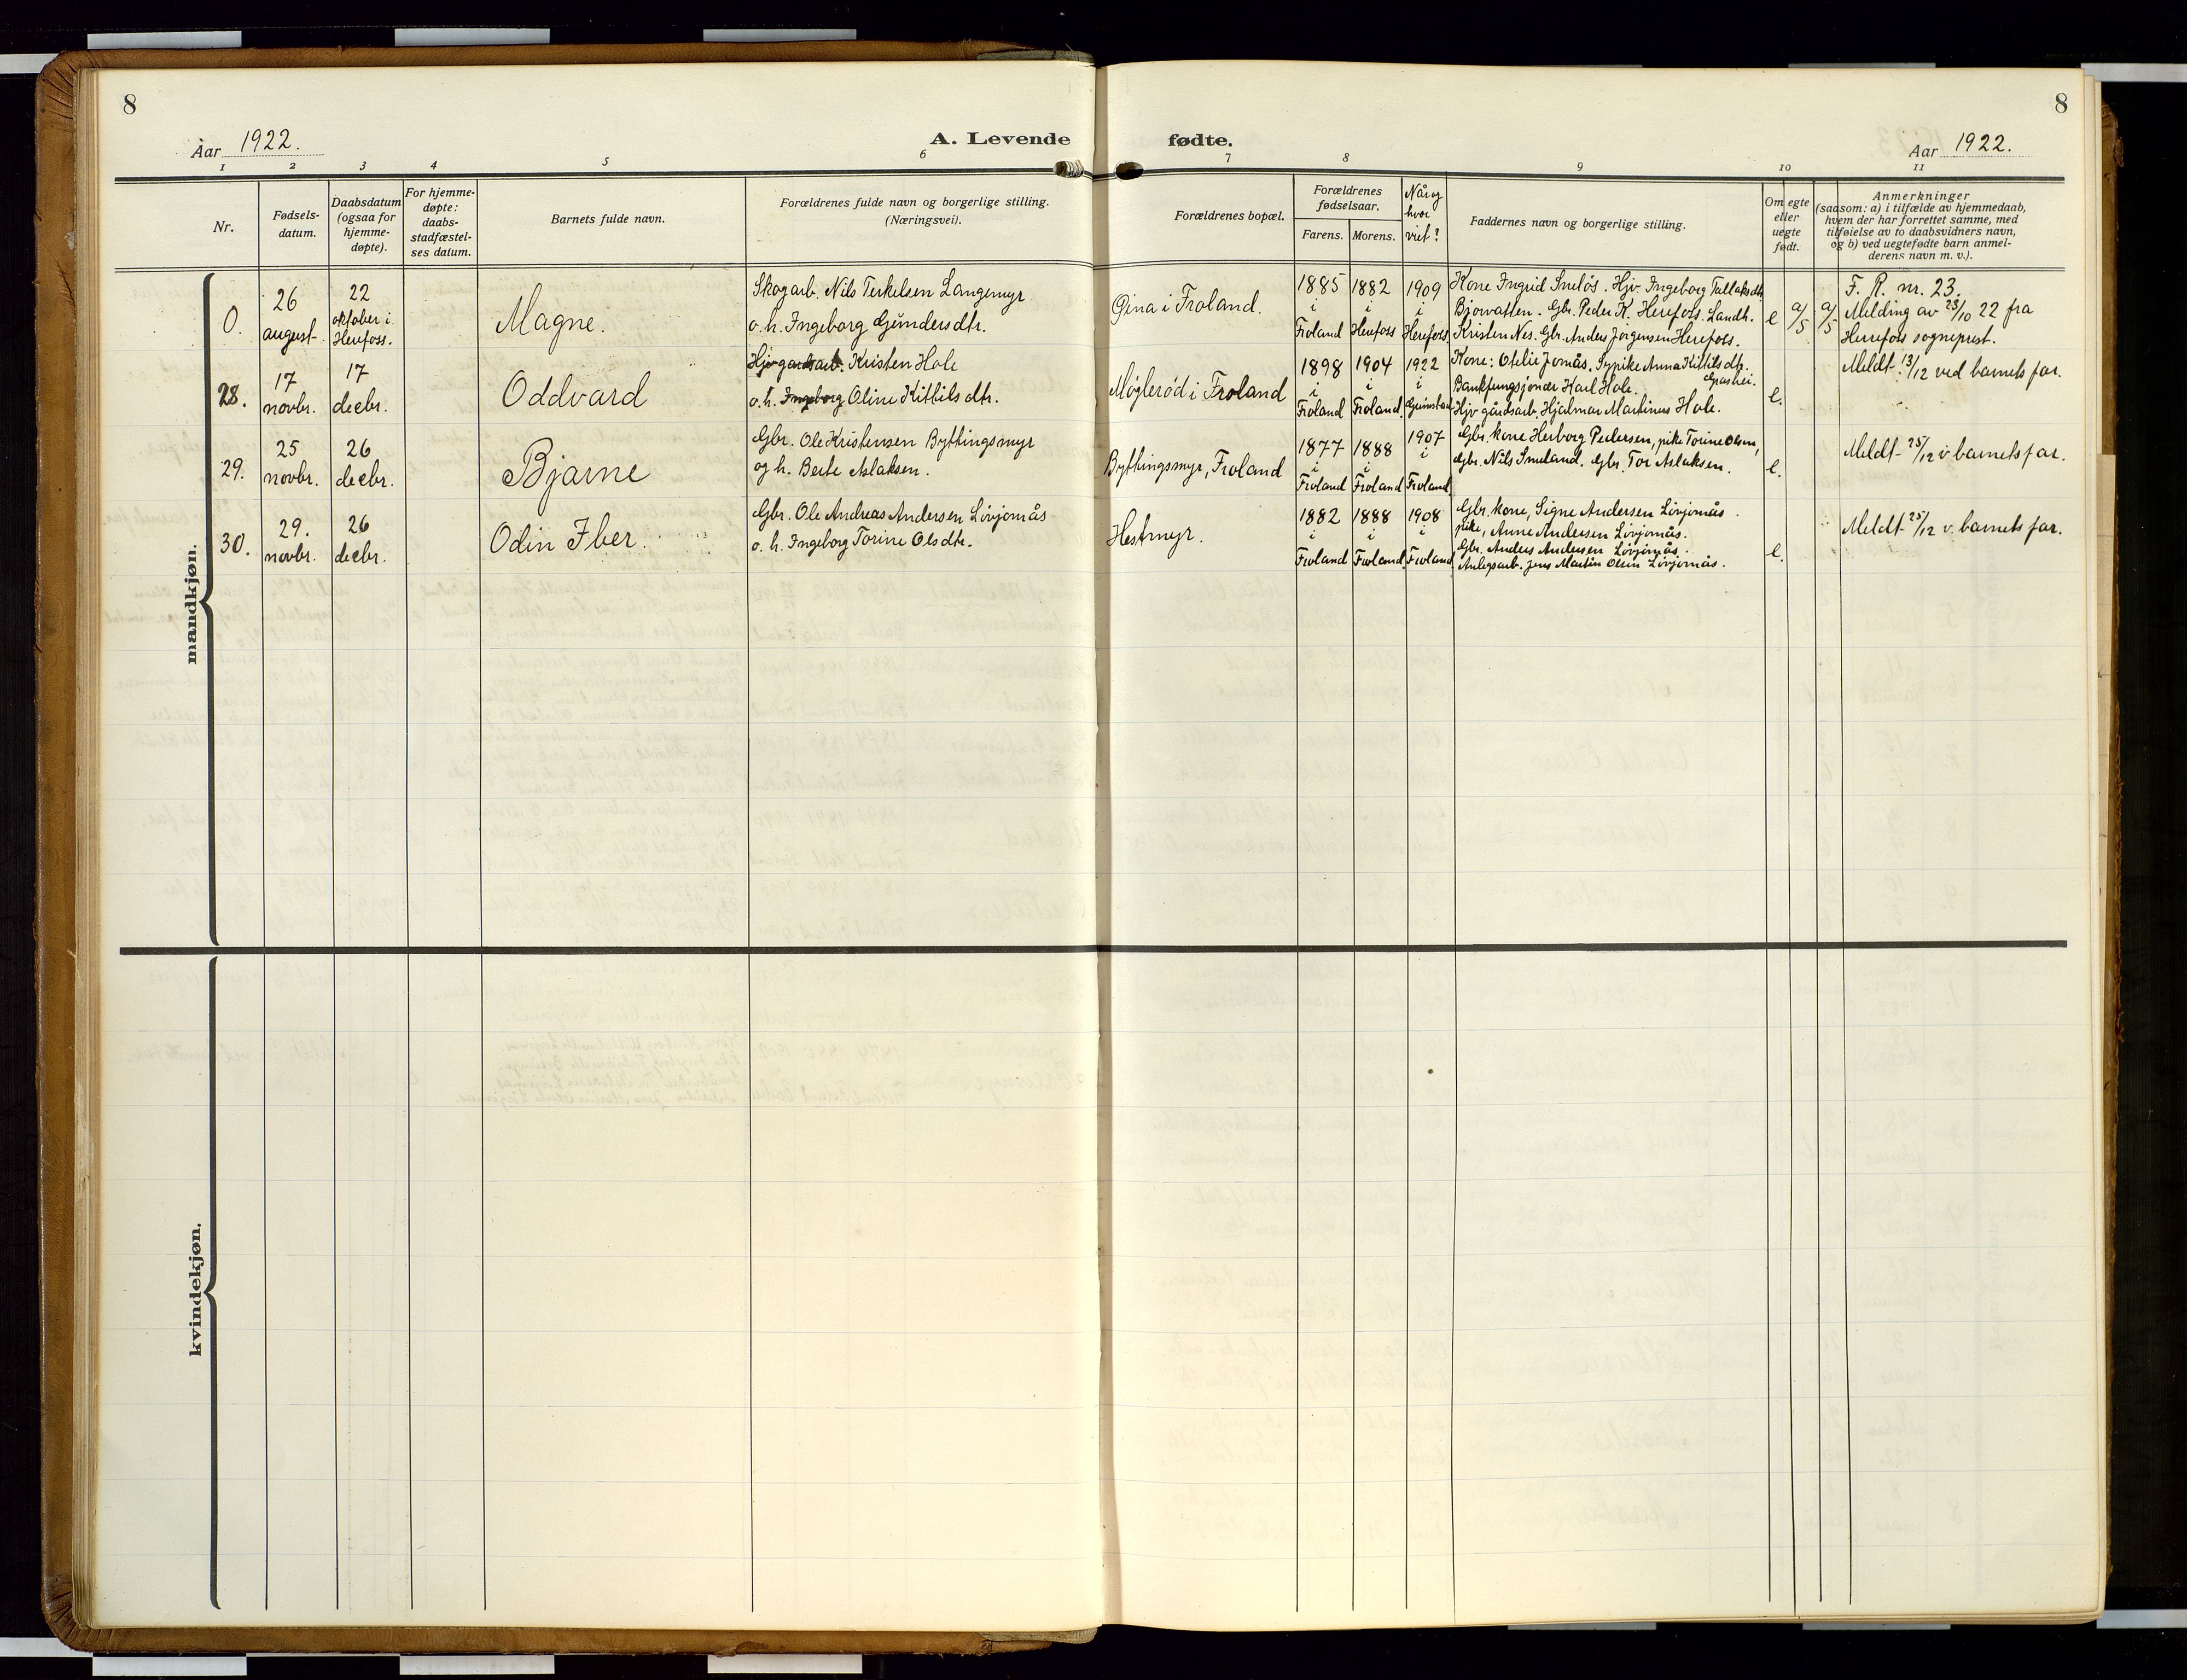 8
Aar 1922.
A. Levende
fødte.
Aar 1922.
8
1 2 3 4 5 6 7 8 9 10 11
Nr.
Fødsels-
datum.
Daabsdatum
(ogsaa for
hjemme-
døpte).
For hjemme-
døpte:
daabs-
stadfæstel-
ses datum.
Barnets fulde navn.
Forældrenes fulde navn og borgerlige stilling.
(Næringsvei).
Forældrenes bopæl.
Forældrenes
fødselsaar.
Farens. Morens.
Når og
hvor
viet?
Faddernes navn og borgerlige stilling.
Om egte
eller
uegte
født.
Anmerkninger
(saasom: a) i tilfælde av hjemmedaab,
hvem der har forrettet samme, med
tilføielse av to daabsvidners navn,
og b) ved uegtefødte barn anmel-
derens navn m. v.).
mandkjøn.
0.
26
august
22
oktober i
Herefoss.
Magne.
Skogarb. Nils Terkelsen Langemyr
o. h. Ingeborg Gundersdtr.
Gina i Froland.
1885
i
Froland
1882
i
Herefoss
1909
i
Herefoss
Kone Ingrid Sneløs. Hjv. Ingeborg Tallaksdtr.
Bjorvatten. Gbr. Peder K. Herefoss. Landh.
Kristen Nes. Gbr. Anders Jørgensen Herefoss.
e
a/5
a/5
F. R. nr. 23.
Melding av 23/10 22 fra
Herefoss sogneprest.
28.
17
novbr.
17
decbr.
Oddvard
Hjv gardsarb. Kristen Hole
o. h. Ingeborg Oline Kittilsdtr.
Møglerød i Froland
1898
i
Froland
1904
i
Froland
1922
i
Grimstad
Kone: Otelie Jomås. Sypike Anna Kittilsdtr.
Grashei.
Bankfungsjonær Karl Hole.
Hjv gårdsarb. Hjalmar Martinus Hole.
e.
Meldt 13/12 ved barnets far.
29.
25
novbr.
26
decbr.
Bjarne
Gbr. Ole Kristensen Byttingsmyr
og h. Berte Aslaksen.
Byttingsmyr, Froland
1877
i
Froland
1888
i
Froland
1907
i
Froland
Gbr. kone Herborg Pedersen, pike Torine Olsen,
Gbr. Nils Smeland. Gbr. Tor Aslaksen.
e.
Meldt 25/12 v barnets far.
30.
29.
novbr.
26
decbr.
Odin Iber.
Gbr. Ole Andreas Andersen Løvjomås
o. h. Ingeborg Torine Olsdtr.
Hestmyr.
1882
i
Froland
1888
i
Froland
1908
i
Froland
Gbr. kone, Signe Andersen Løvjomås.
pike, Anne Andersen Løvjomås.
Gbr. Anders Andersen Løvjomås.
Anlegsarb. Jens Martin Olsen Løvjomås.
e.
Meldt 25/12 v. barnets far.
kvindekjøn.